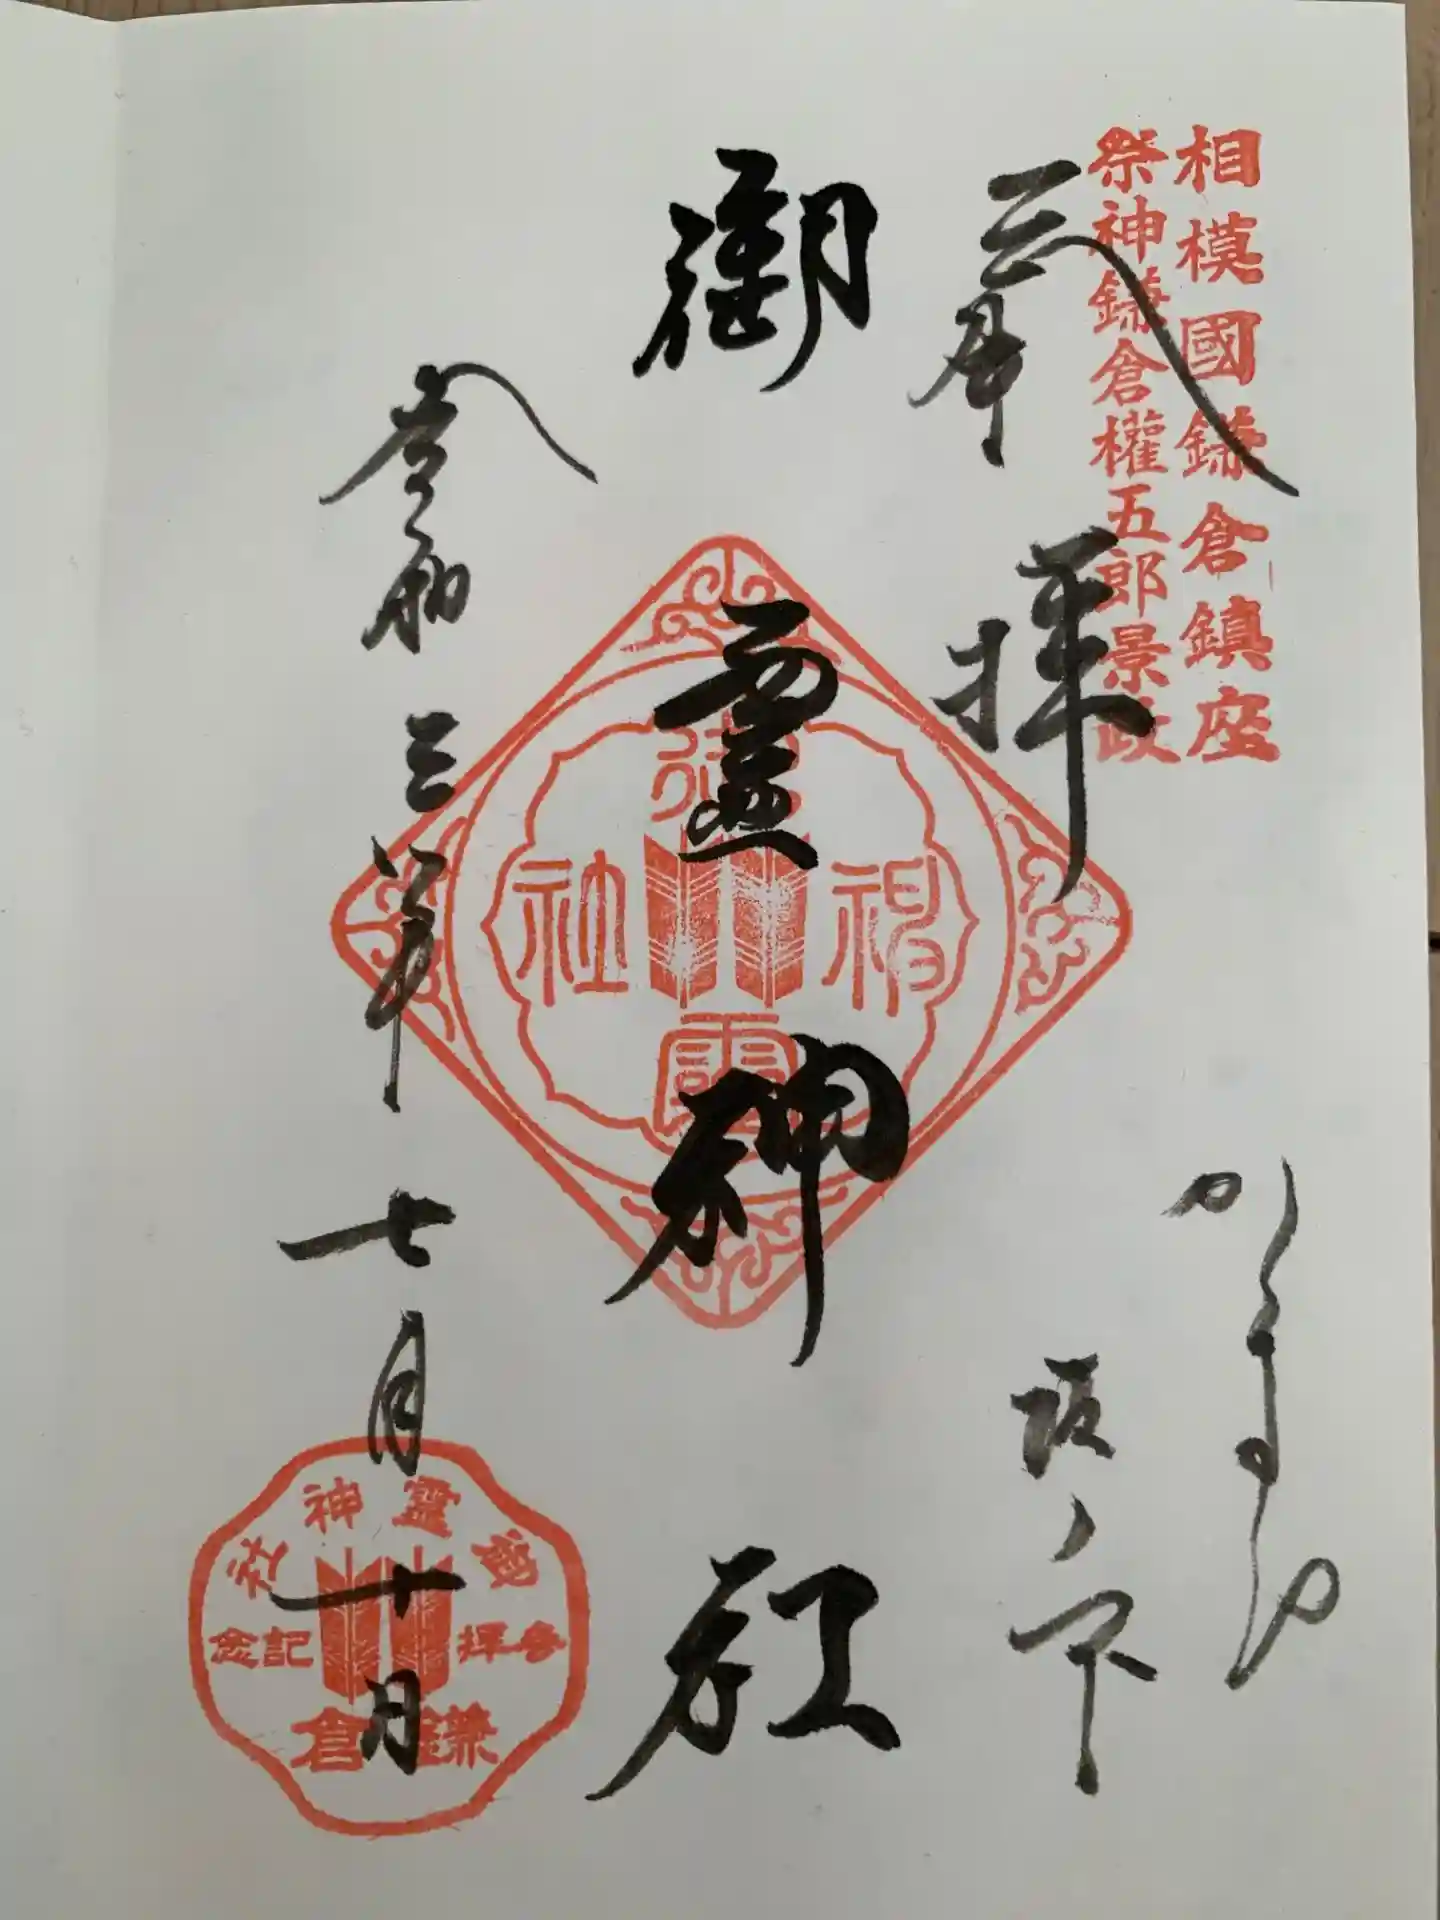 相模國鎌倉鎮座
祭神鎌倉權五郎景政
奉拝
かまくら
坂ノ下
御靈神社
令和三年七月十日
御靈神社
御靈神社
参拝記念
鎌倉